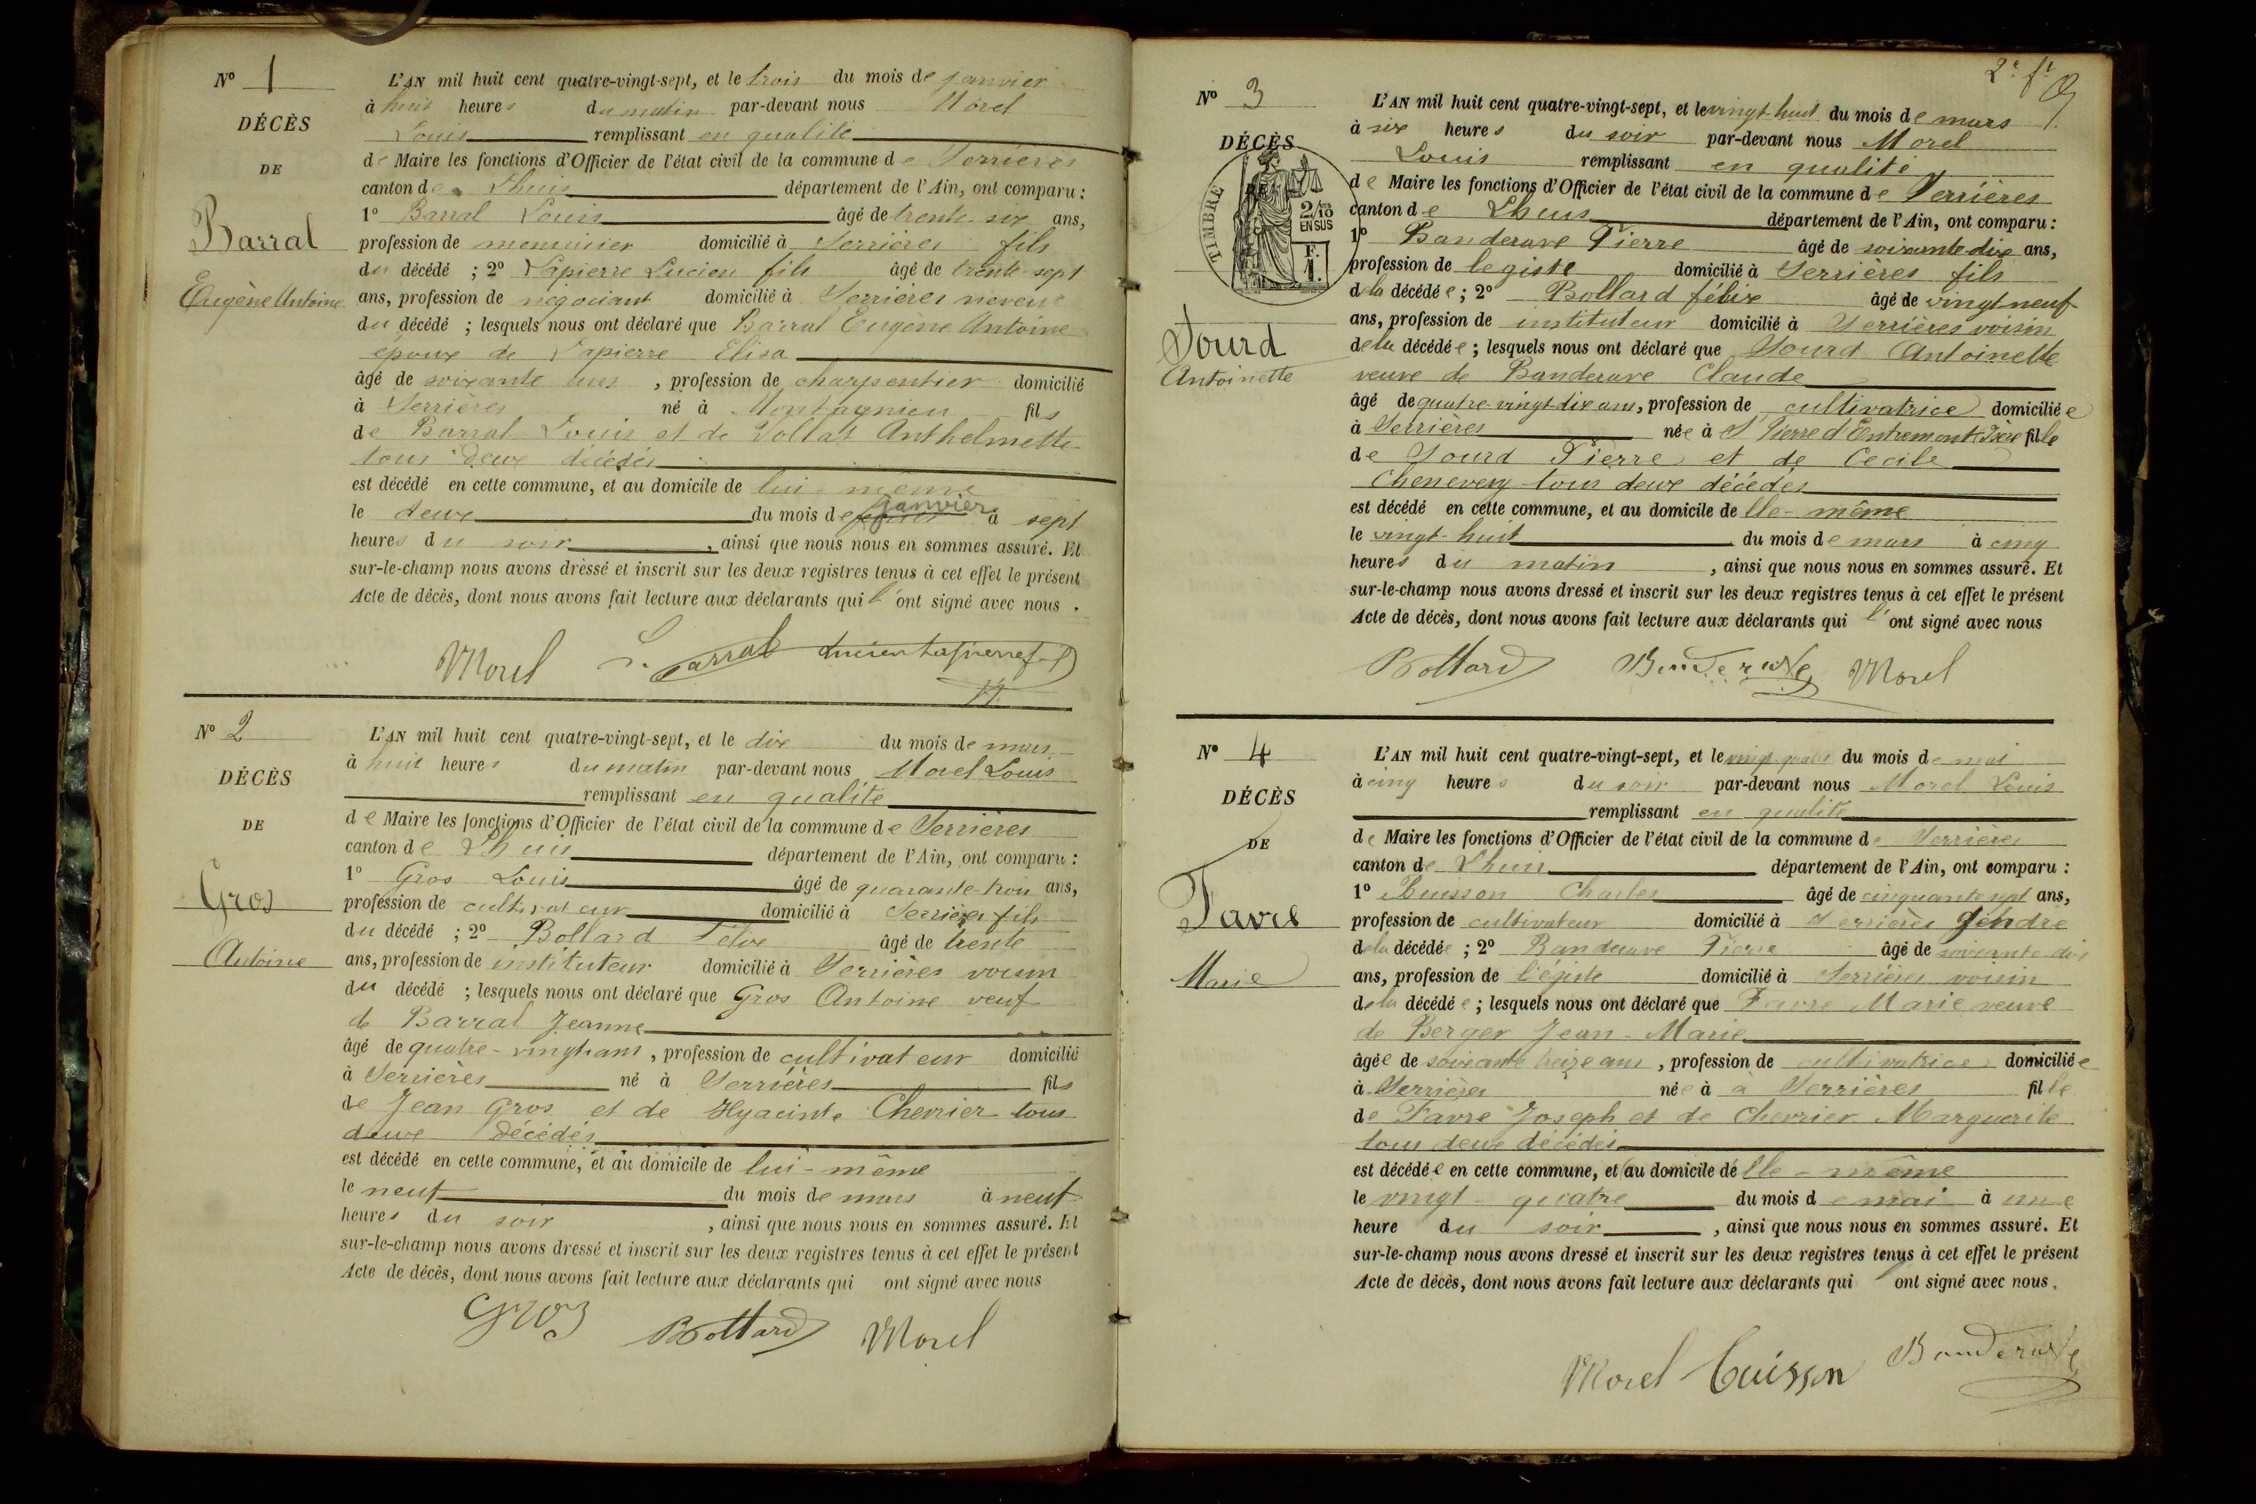 N° 1
DÉCÈS
DE
Barral
Eugène Antoine
L'AN mil huit cent quatre-vingt-sept, et le trois du mois de janvier
à huit heures du matin par-devant nous Morel
Louis remplissant en qualité
de Maire les fonctions d'Officier de l'état civil de la commune de Serrières
canton de Lhuis département de l'Ain, ont comparu :
1° Barral Louis âgé de trente-six ans,
profession de menuisier domicilié à Serrières fils
du décédé ; 2° Lapierre Lucien fils âgé de trente-sept
ans, profession de négociant domicilié à Serrières neveu
du décédé ; lesquels nous ont déclaré que Barral Eugène Antoine
époux de Lapierre Elisa
âgé de soixante , profession de charpentier domicilié
à Serrières né à Montagnieu fils
de Barral Louis et de Anthelmette
tous deux décédés
est décédé en cette commune, et au domicile de lui-même
le deux du mois de janvier à sept
heures du soir , ainsi que nous nous en sommes assuré. Et
sur-le-champ nous avons dressé et inscrit sur les deux registres tenus à cet effet le présent
Acte de décès, dont nous avons fait lecture aux déclarants qui l'ont signé avec nous .
Morel L. Barral Lucien Lapierre fils
N° 2
DÉCÈS
DE
Gros
Antoine
L'AN mil huit cent quatre-vingt-sept, et le dix du mois de mars
à huit heures du matin par-devant nous Morel Louis
remplissant en qualité
de Maire les fonctions d'Officier de l'état civil de la commune de Serrières
canton de Lhuis département de l'Ain, ont comparu :
1° Gros Louis âgé de quarante-trois ans,
profession de cultivateur domicilié à Serrières fils
du décédé ; 2° Bollard Félix âgé de trente
ans, profession de instituteur domicilié à Serrières voisin
du décédé ; lesquels nous ont déclaré que Gros Antoine veuf
de Barral Jeanne
âgé de quatre-vingt ans , profession de cultivateur domicilié
à Serrières né à Serrières fils
de Jean Gros et de Hyacinte Chevrier tous
deux décédés
est décédé en cette commune, et au domicile de lui-même
le neuf du mois de mars à neuf
heures du soir , ainsi que nous nous en sommes assuré. Et
sur-le-champ nous avons dressé et inscrit sur les deux registres tenus à cet effet le présent
Acte de décès, dont nous avons fait lecture aux déclarants qui ont signé avec nous
Gros Bollard Morel
2e ft
N° 3
DÉCÈS
DE
TIMBRE
2/10
EN SUS
F.
1.
Sourd
Antoinette
L'AN mil huit cent quatre-vingt-sept, et le vingt-huit du mois de mars
à six heures du soir par-devant nous Morel
Louis remplissant en qualité
de Maire les fonctions d'Officier de l'état civil de la commune de Serrières
canton de Lhuis département de l'Ain, ont comparu :
1° Banderave Pierre âgé de soixante dix ans,
profession de legiste domicilié à Serrières fils
de la décédée ; 2° Bollard félix âgé de vingt neuf
ans, profession de instituteur domicilié à Serrières voisin
de la décédée ; lesquels nous ont déclaré que Sourd Antoinette
veuve de Banderave Claude
âgé de quatre-vingt-dix ans, profession de cultivatrice domiciliée
à Serrières née à St Pierre d'Entremont Isère fille
de Sourd Pierre et de Cecile
tous deux décédés
est décédé en cette commune, et au domicile de lle-même
le vingt-huit du mois de mars à cinq
heures du matin , ainsi que nous nous en sommes assuré. Et
sur-le-champ nous avons dressé et inscrit sur les deux registres tenus à cet effet le présent
Acte de décès, dont nous avons fait lecture aux déclarants qui l'ont signé avec nous
Bollard Banderave Morel
N° 4
DÉCÈS
DE
Favre
Marie
L'AN mil huit cent quatre-vingt-sept, et le vingt quatre du mois de mai
à cinq heures du soir par-devant nous Morel Louis
remplissant en qualité
de Maire les fonctions d'Officier de l'état civil de la commune de Serrières
canton de Lhuis département de l'Ain, ont comparu :
1° Cuisson Charles âgé de cinquante sept ans,
profession de cultivateur domicilié à Serrières gendre
de la décédée ; 2° Banderave Pierre âgé de soixante dix
ans, profession de légiste domicilié à Serrières voisin
de la décédée ; lesquels nous ont déclaré que Favre Marie veuve
de Berger Jean-Marie
âgée de soixante treize ans , profession de cultivatrice domiciliée
à Serrières née à à Serrières fille
de Favre Joseph et de Chevrier Marguerite
tous deux décédés
est décédée en cette commune, et au domicile dé lle-même
le vingt-quatre du mois de mai à une
heure du soir , ainsi que nous nous en sommes assuré. Et
sur-le-champ nous avons dressé et inscrit sur les deux registres tenus à cet effet le présent
Acte de décès, dont nous avons fait lecture aux déclarants qui ont signé avec nous.
Morel Cuisson Banderave